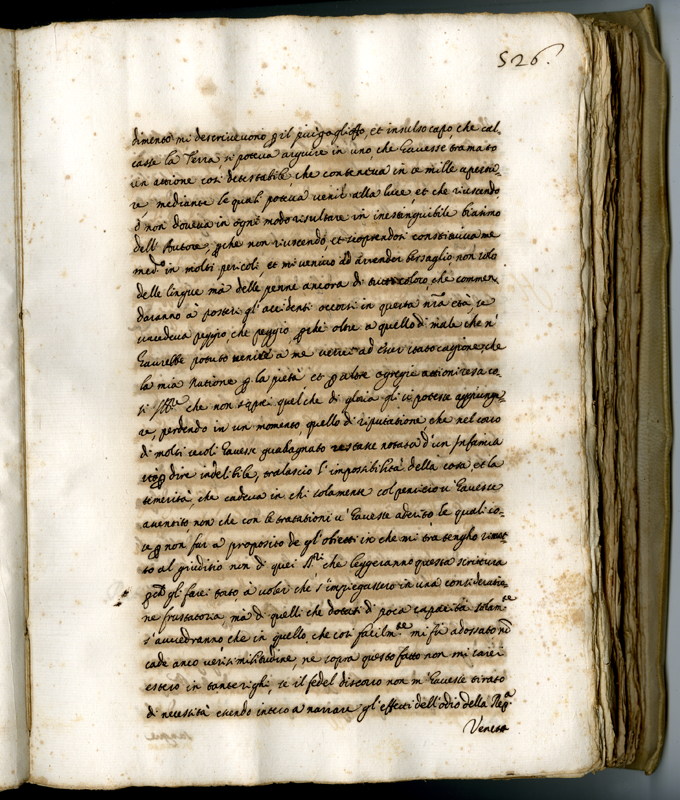 526.
dimento mi descrivevono p il più goglioffo, et insulso capo, che cal,
casse la Terra, si poteva arguire in uno, che havesse tramato
un attione così detestabile, che conteneva in se mille apertu
re, mediante le quali poteva venir alla luce, et che riuscendo
ò non doveva in ogni modo risultare in inestinguibile biasimo
dell' Autore, pche non riuscendo, et scoprendosi constituiva me
med.º in molti pericoli et mi venivo ad àrrender bersaglio non solo
delle lingue mà delle penne ancora di tutti coloro, che commen,
daranno à posteri gl'accidenti occorsi in questa nrã età, se
succedeva peggio, che peggio, pche oltre a quello di male che n'
havrebbe potuto venire a me verrei ad esser stato cagione, che
la mia Natione p la pietà et p altre egregie attioni resa co,
sì Ill.re che non saprei quel che di gloria gli si potesse aggiunge,
re, perdendo in un momento quello di riputatione, che nel corso
di molti secoli havesse guadagnato restasse notata d'un Infamia
p dire indelibile, tralascio l'impossibilità della cosa, et la
temerità, che cadeva in chi solamente col pensiero v'havesse
assentito non che con le trattationi v'havesse aderito le quali co,
se p non far a proposito de gl'obietti in che mi trattengho rimet
to al giuditio non di quei SS.ri che leggeranno questa scrittura
gli farei torto à voler che s'impiegassero in una consideratio
ne frustatoria, mà di quelli che dotati di poca capacità solam.te
s'avvedranno che in quello, che così facilm.te mi fù adossato nõ
cade anco verisimilitudine, ne sopra questo fatto non mi sarei
esteso in tante righi, se il fedel discorso non m'havesse tirato
di necessità essendo inteso a narrare gl'effetti dell'odio della Rep.a
Veneta